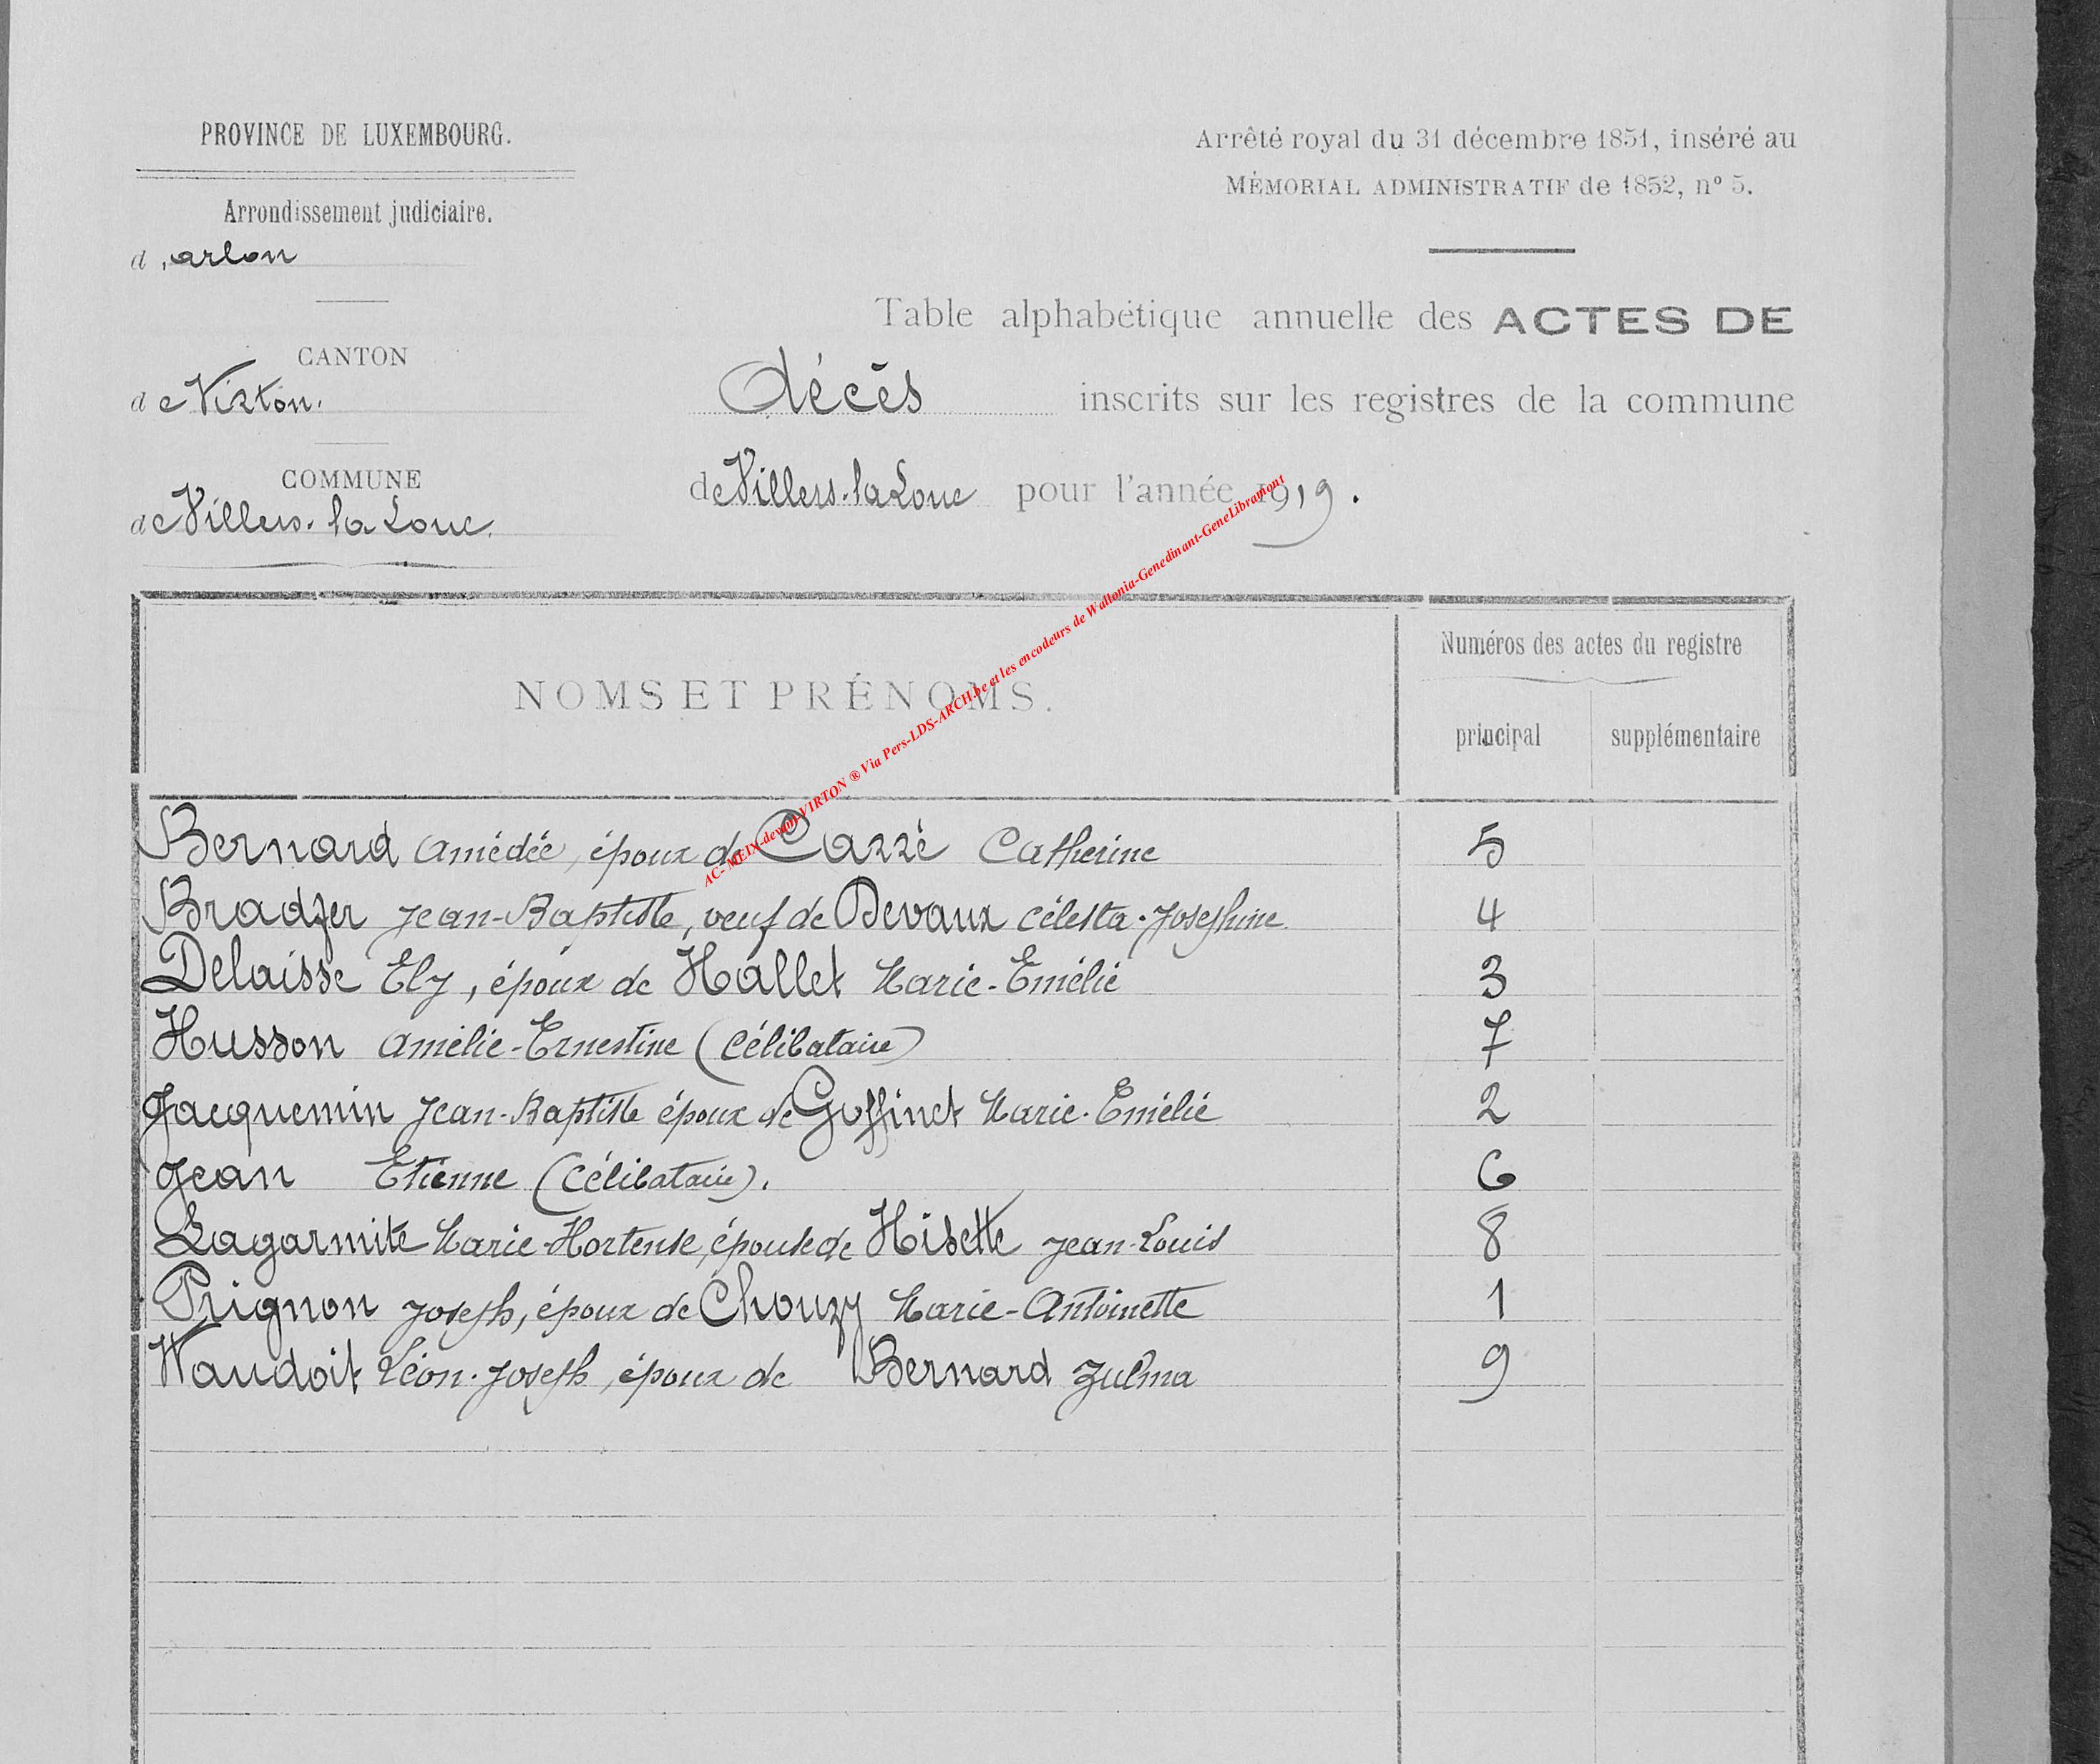 PROVINCE DE LUXEMBOURG.
Arrondissement judiciaire.
d'arlon
CANTON
de Virton.
COMMUNE
de Villers-la Loue.
Arrêté royal du 31 décembre 1851, inséré au
MÉMORIAL ADMINISTRATIF de 1852, n° 5.
Table alphabétique annuelle des ACTES DE
décès inscrits sur les registres de la commune
de Villers-la Loue pour l'année 1919.
AC-MEIX-devant-VIRTON ® Via Pers-LDS-ARCH.be et les encodeurs de Wallonia-Genedinant-GeneLibramont
NOMS ET PRÉNOMS.
Numéros des actes du registre
principal supplémentaire
Bernard Amédée, époux de Carré Catherine 5
Bradfer Jean-Baptiste, veuf de Devaux Célesta-Josephine 4
Delaisse Ely, époux de Hallet Marie-Emélie 3
Husson Amélie-Ernestine (Célibataire) 7
Jacquemin Jean-Baptiste époux de Goffinet Marie-Emélie 2
Jean Etienne (Célibataire). 6
Lagarmite Marie-Hortense, épouse de Hisette Jean-Louis 8
Prignon Joseph, époux de Chouzy Marie-Antoinette 1
Waudoit Léon-Joseph, époux de Bernard Zulma 9